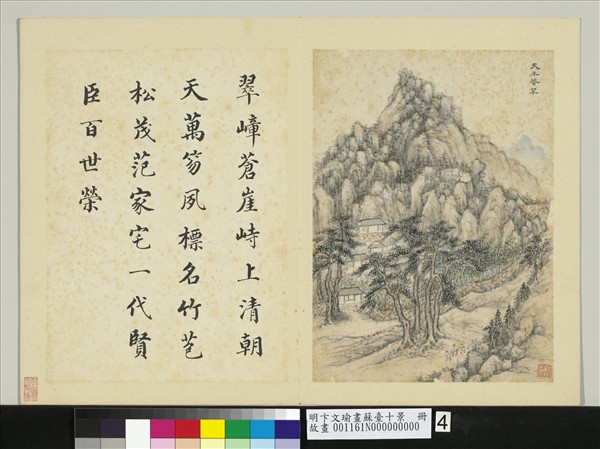 天平
翠
翠嶂蒼崖峙上清朝
天萬笏夙標名竹苞
松茂范家宅一代賢
臣百世榮
明卞文瑜畫蘇臺十景 冊
故畫 001161N000000000
4